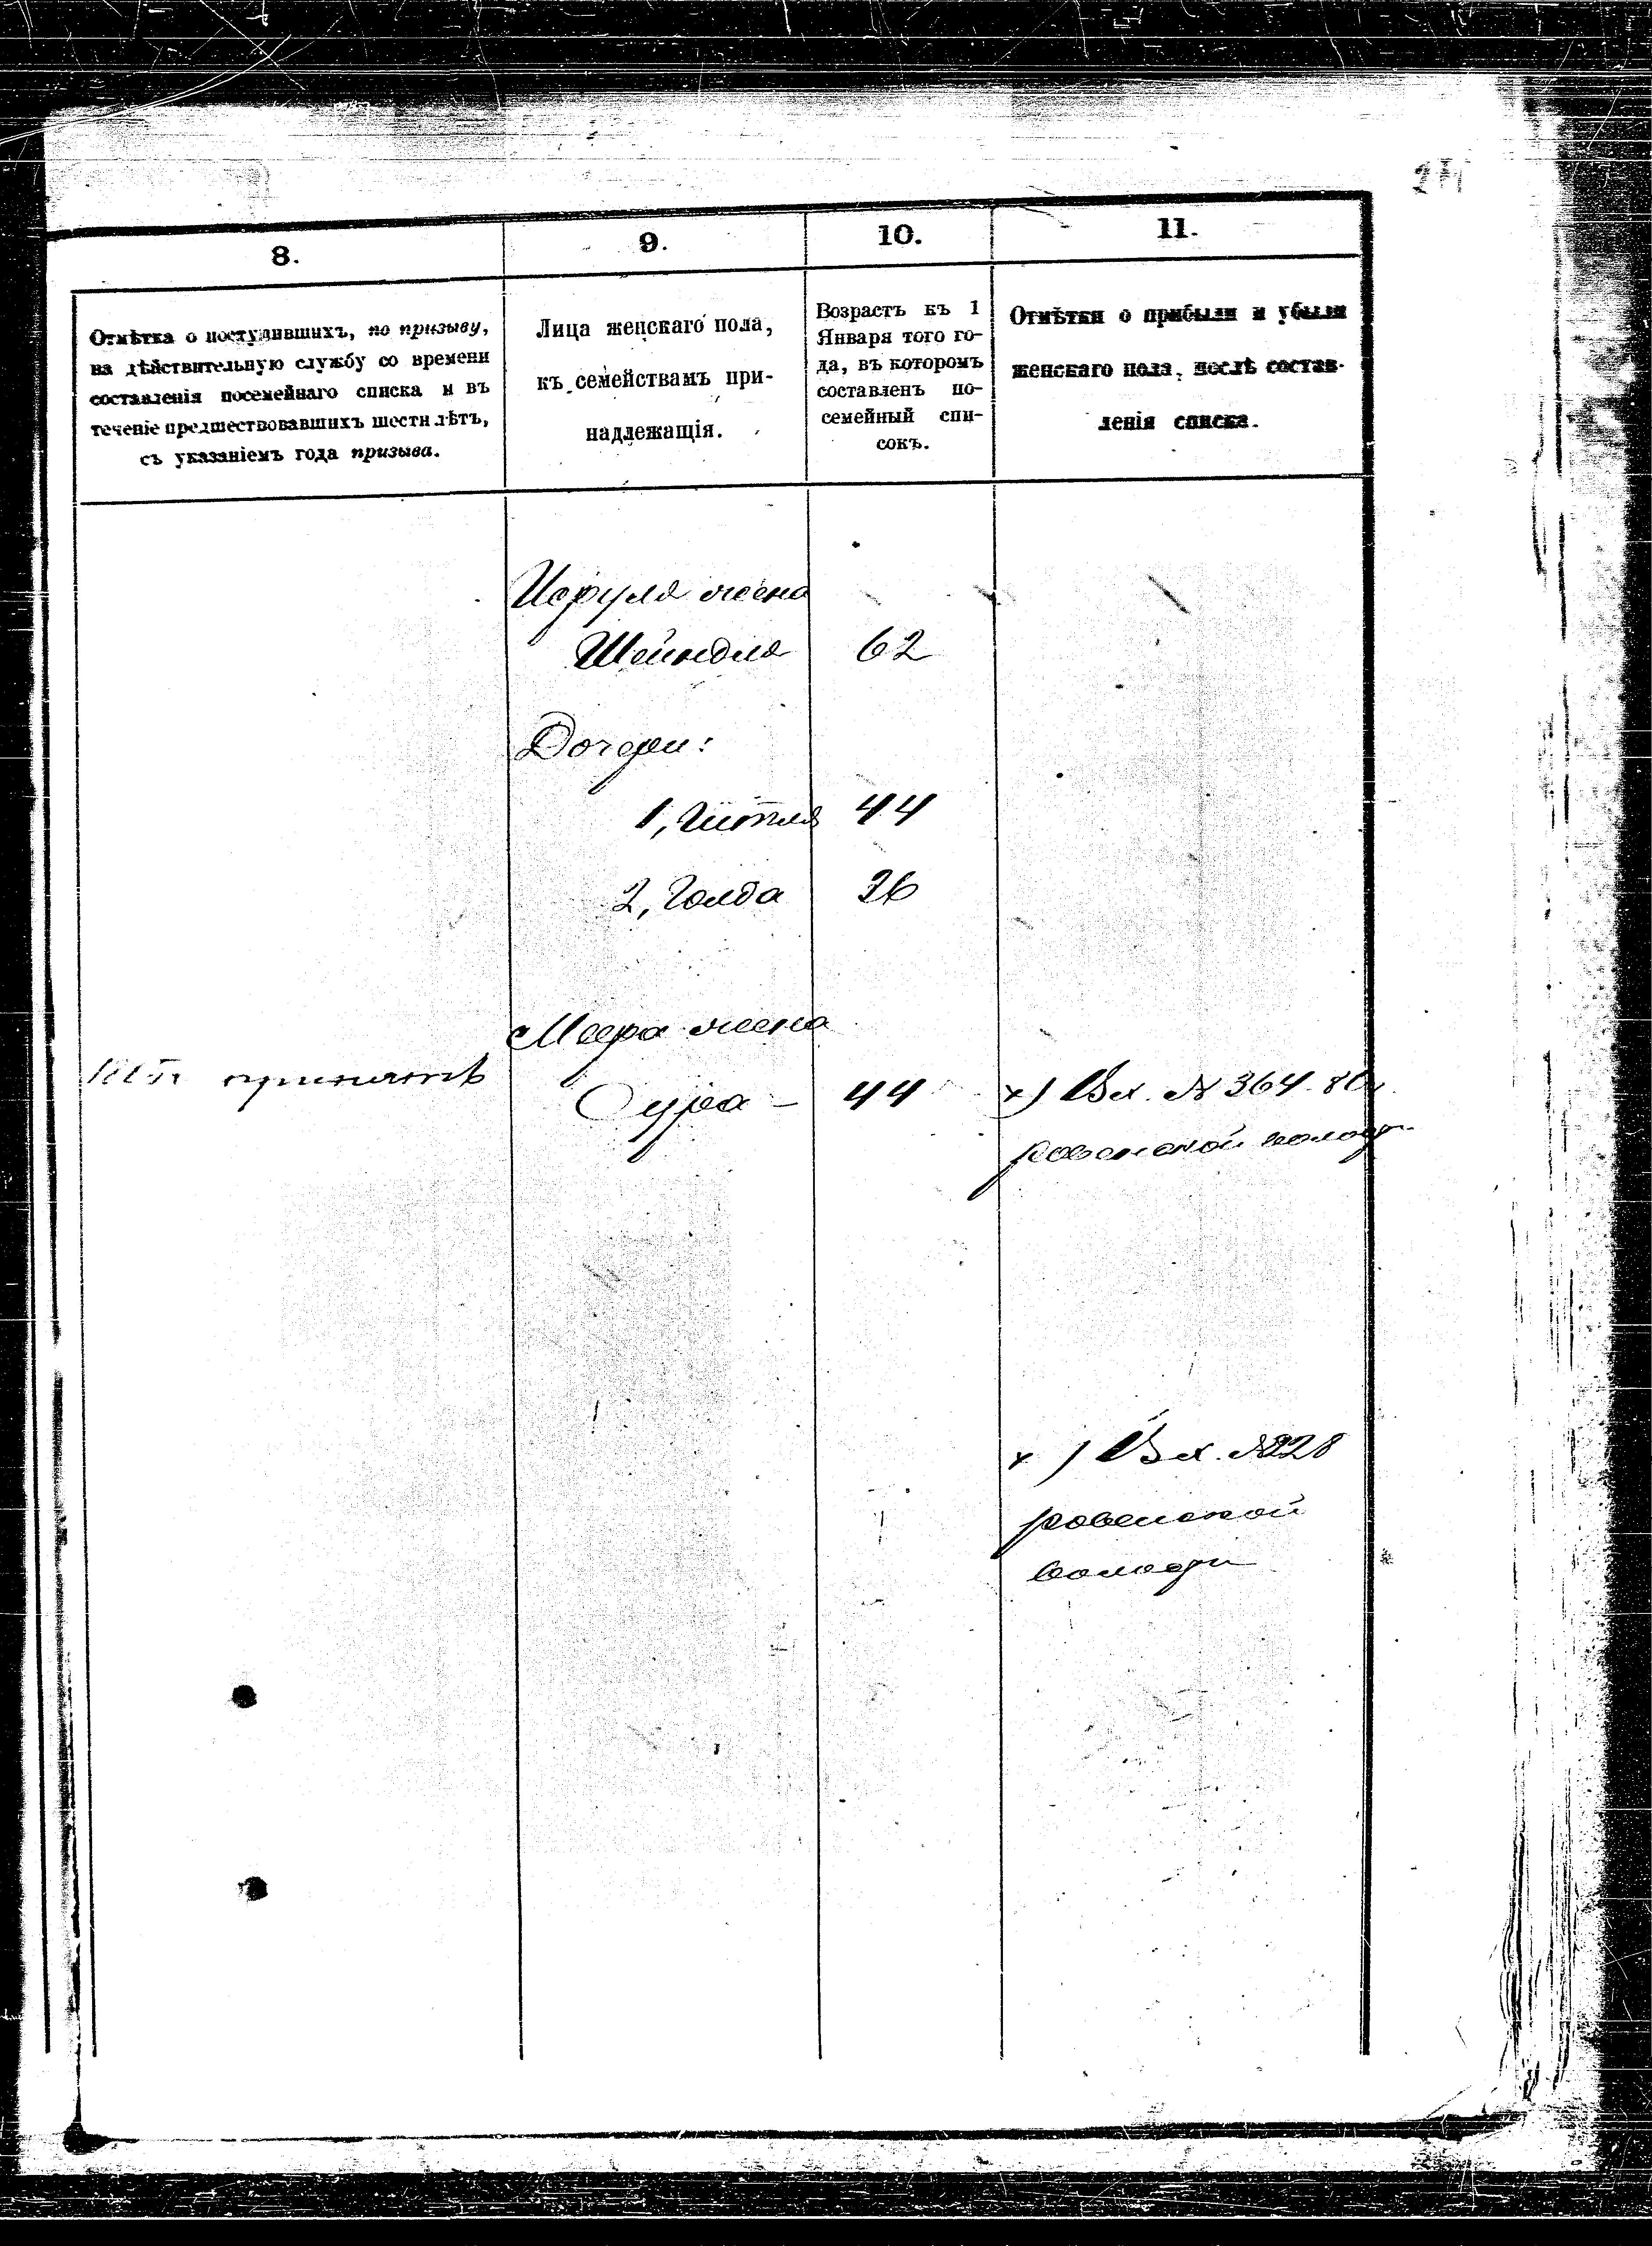 8.
9.
10.
11.
Отмѣтка о поступившихъ, по призыву,
на дѣйствительную службу со времени
составленія посемейнаго списка и въ
теченіе предшествовавшихъ шести лѣтъ,
съ указаніемъ года призыва.
Лица женскаго пола,
къ семействамъ при-
надлежащія.
Возрастъ къ 1
Января того го-
да, въ которомъ
составленъ по-
семейный спи-
сокъ.
Отмѣтки о прибыли и убыли
женскаго пола, послѣ состав-
ленія списка.
Исруля жена
Шейндля 62
Дочери:
1, Гитля 44
2, Голда 26
Меера жена
принятъ
Сура - 44
х) Вх. № 364
ровенской
х) Вх. №
ровенской